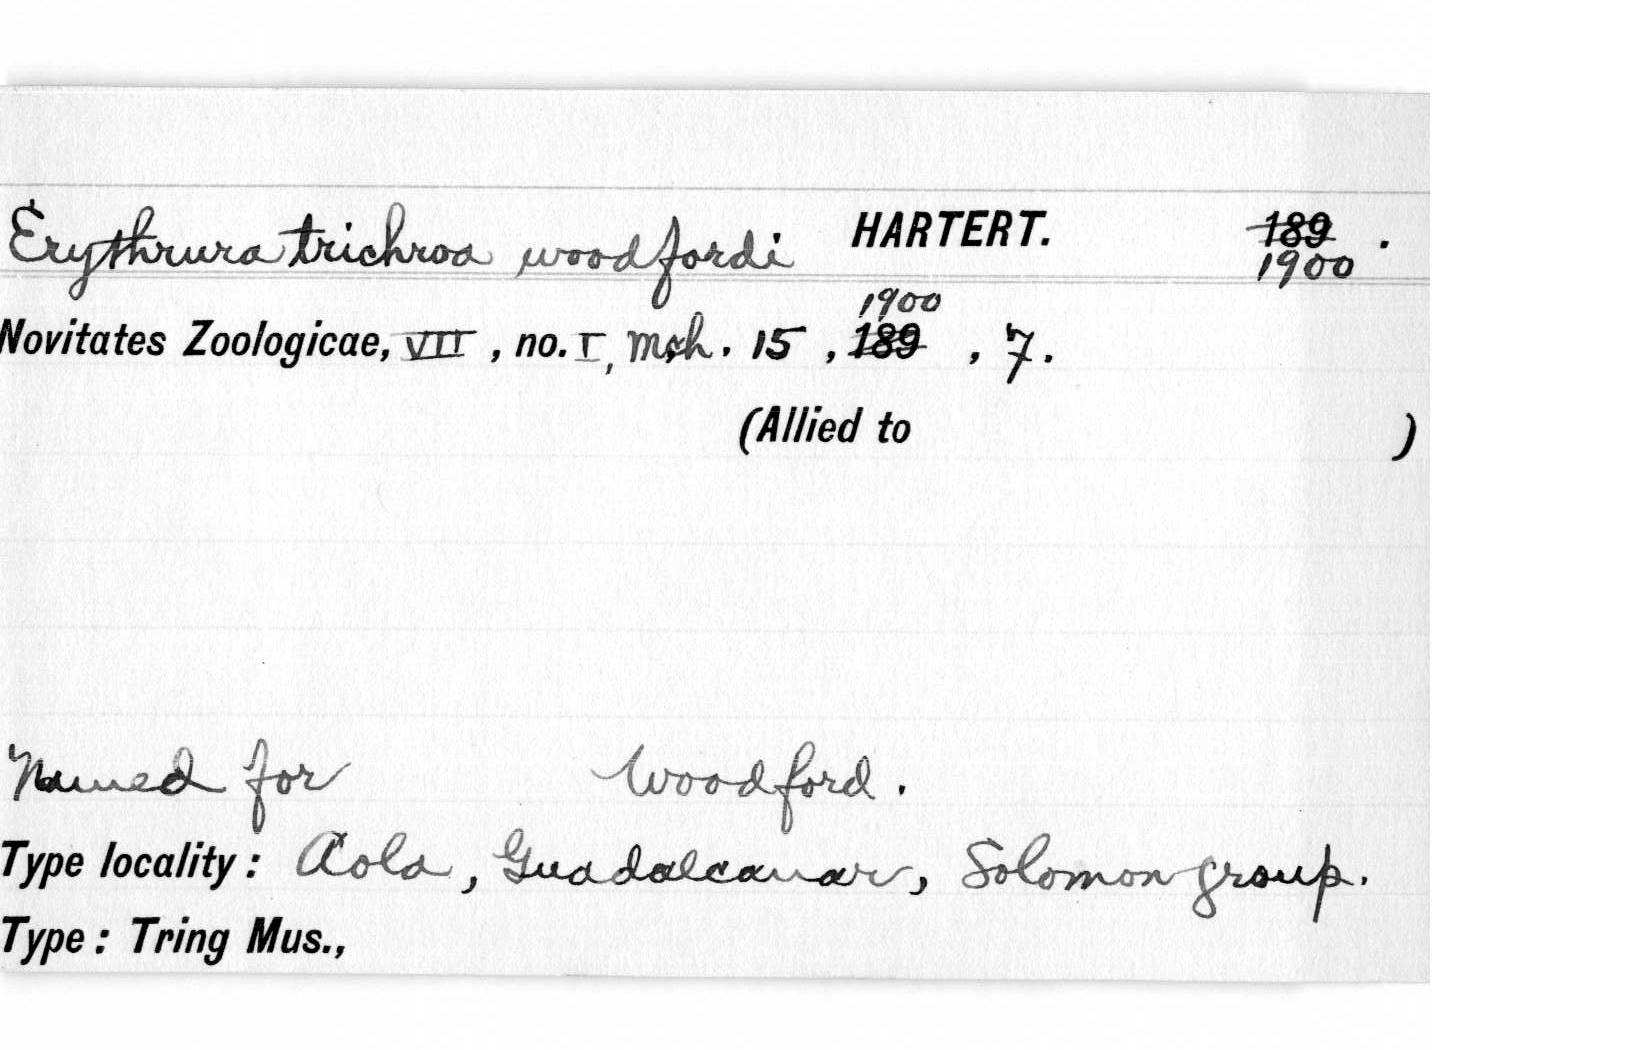 Erythrura trichroa woodfordi HARTERT. 189 .
1900
1900
Novitates Zoologicae, VII , no. I, Mch. 15 , 189 , 7.
(Allied to )
Named for Woodford.
Type locality: Aola, Guadalcanar, Solomon group.
Type: Tring Mus.,